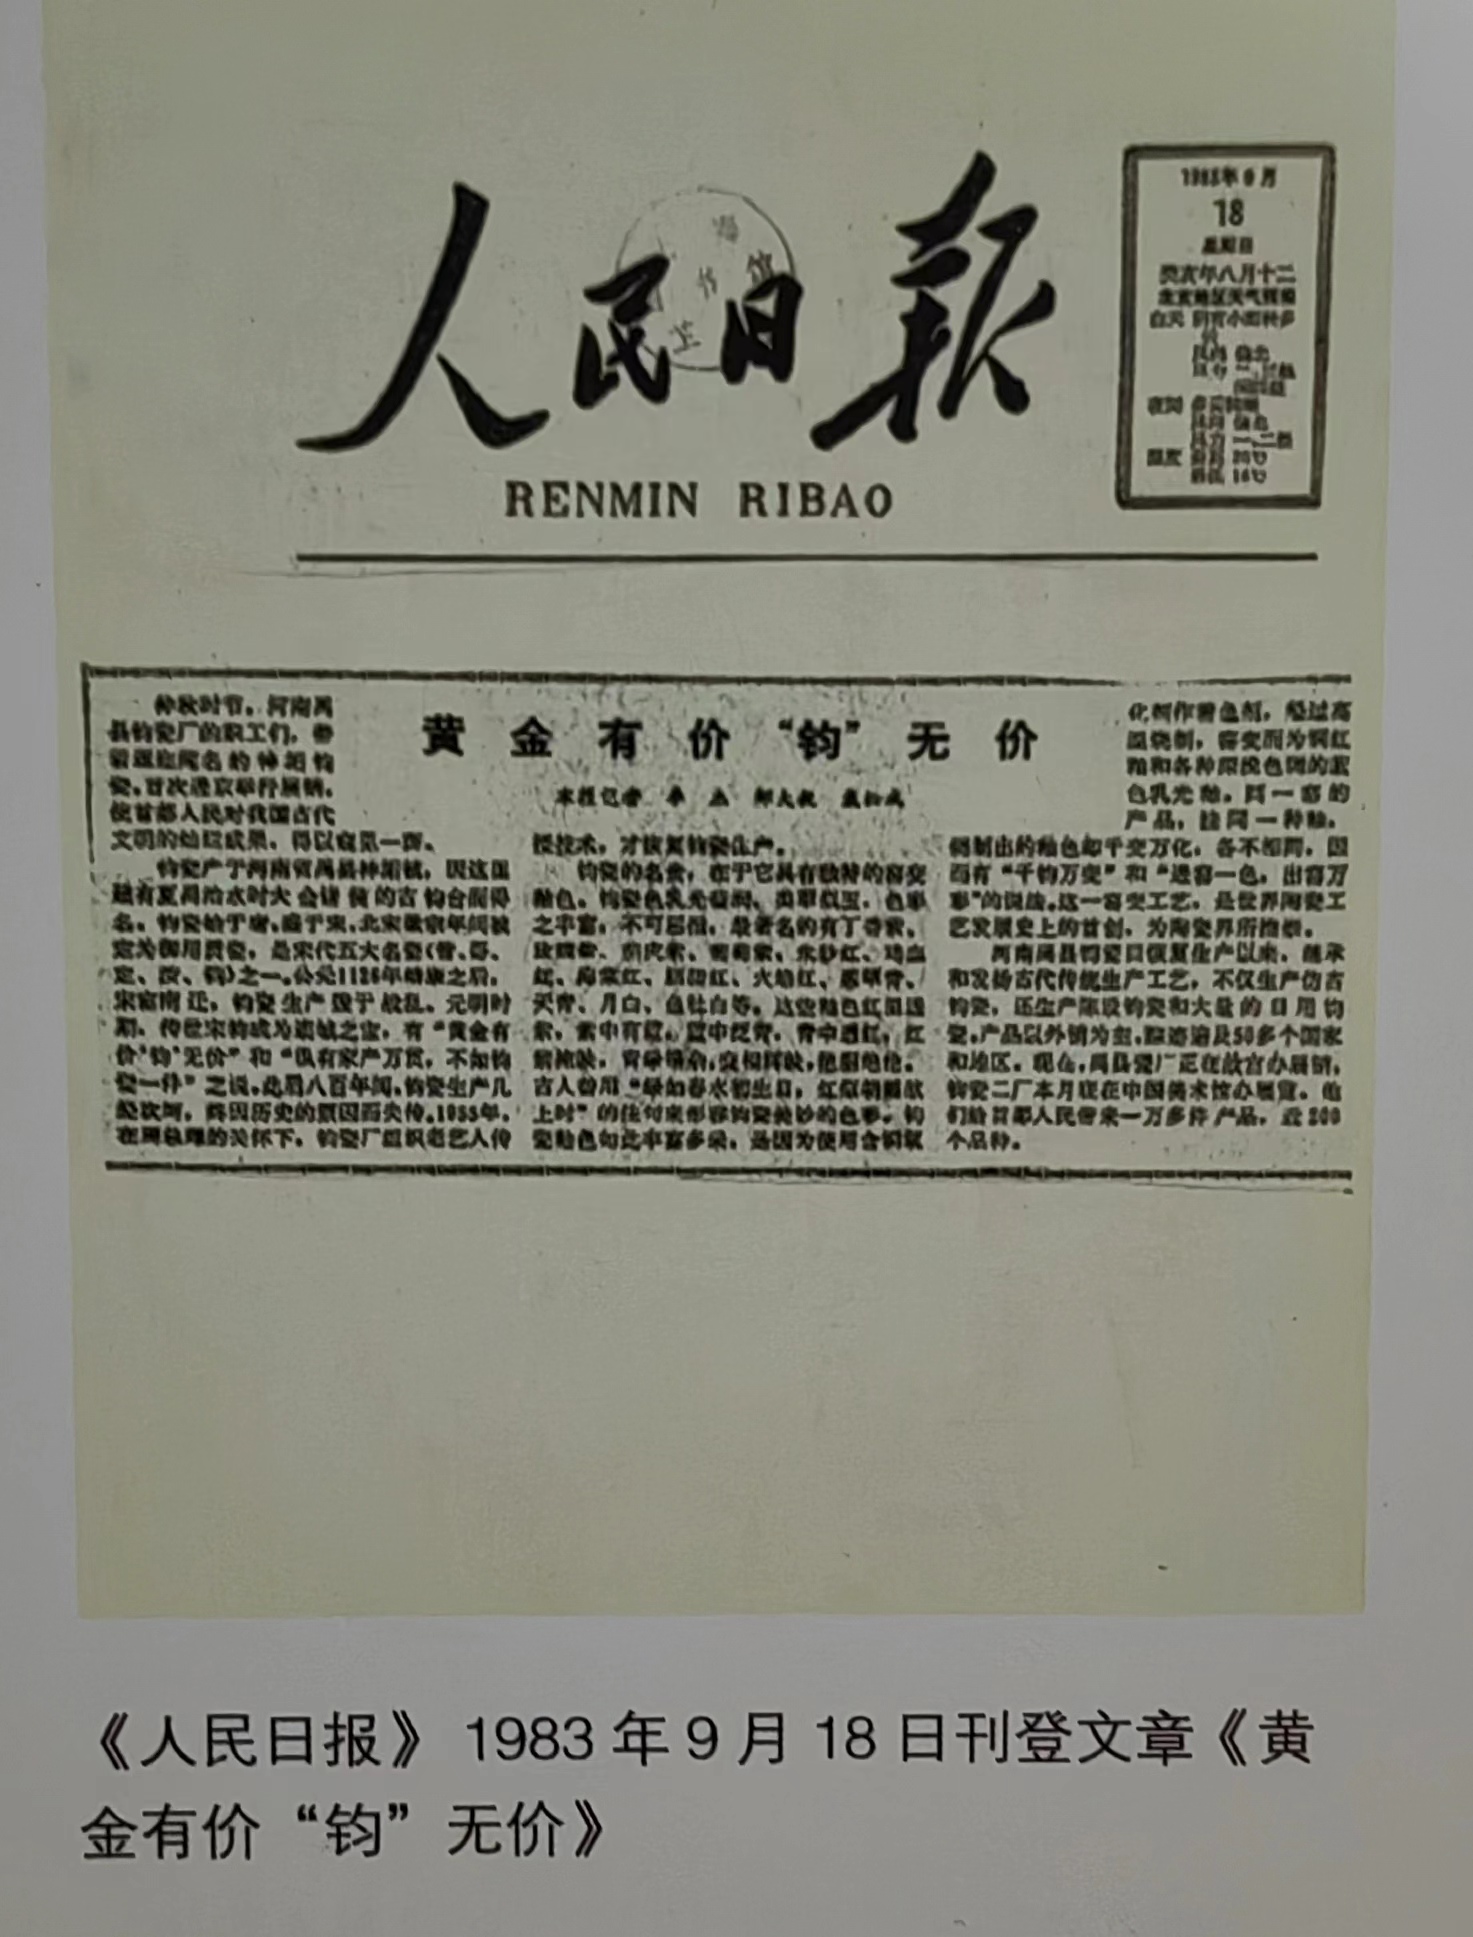 人民日报
RENMIN RIBAO
1983年9月
18
星期日
癸亥年八月十二
北京地区天气预报
白天
夜间
温度
黄金有价“钧”无价
本报记者
仲秋时节，河南禹
县钧瓷厂的职工们，带
着
瓷，首次进京举行展销，
使首都人民对我国古代
文明的灿烂成果，得以窥见一斑。
钧瓷产于河南省禹县神垕镇，因这里
有夏禹治水时大会诸侯的古钧台而得
名。钧瓷始于唐，盛于宋，北宋徽宗年间被
定为御用贡瓷，是宋代五大名瓷（官、哥、
定、汝、钧）之一。公元1126年靖康之后，
宋室南迁，钧瓷生产毁于战乱。元明时
期，传世宋钧成为
之宝，有“黄金有
价‘钧’无价”和“纵有家产万贯，不如钧
瓷一件”之说。此后八百年间，钧瓷生产几
经次
，终因历史的原因而失传。1955年，
在周总理的关怀下，钧瓷厂组织老艺人传
授技术，才恢复钧瓷生产。
钧瓷的名贵，在于它具有独特的窑变
釉色。钧瓷色乳光莹润，类翠似玉，色彩
之丰富，不可思议，最著名的有丁香紫、
玫瑰紫、茄皮紫、葡萄紫、朱砂红、鸡血
红、海棠红、胭脂红、火焰红、葱翠青、
天青、月白、鱼肚白等。这些釉色红里透
紫，紫中有蓝，蓝中泛青，青中透红，红
紫掩映，
交相辉映，
绝伦。
古人曾用“绿如春水初生日，红似朝霞欲
上时”的佳句来形容钧瓷美妙的色彩。钧
瓷釉色如此丰富多采，是因为使用含铜氧
化物作着色剂，经过高
温烧制，窑变而为铜红
釉和各种深浅色调的蓝
色乳光釉。同一窑的
产品，挂同一种釉，
制出的釉色却千变万化，各不相同，因
而有“千钧万变”和“进窑一色，出窑万
彩”的说法。这一窑变工艺，是世界陶瓷工
艺发展史上的首创，为陶瓷界所推崇。
河南禹县钧瓷自恢复生产以来，继承
和发扬古代传统生产工艺，不仅生产仿古
钧瓷，还生产陈设钧瓷和大量的日用钧
瓷。产品以外销为主，踪迹遍及50多个国家
和地区。现在，禹县瓷厂正在故宫办展销，
钧瓷二厂本月底在中国美术馆办展览。他
们给首都人民带来一万多件产品，近200
个品种。
《人民日报》1983年9月18日刊登文章《黄
金有价“钧”无价》